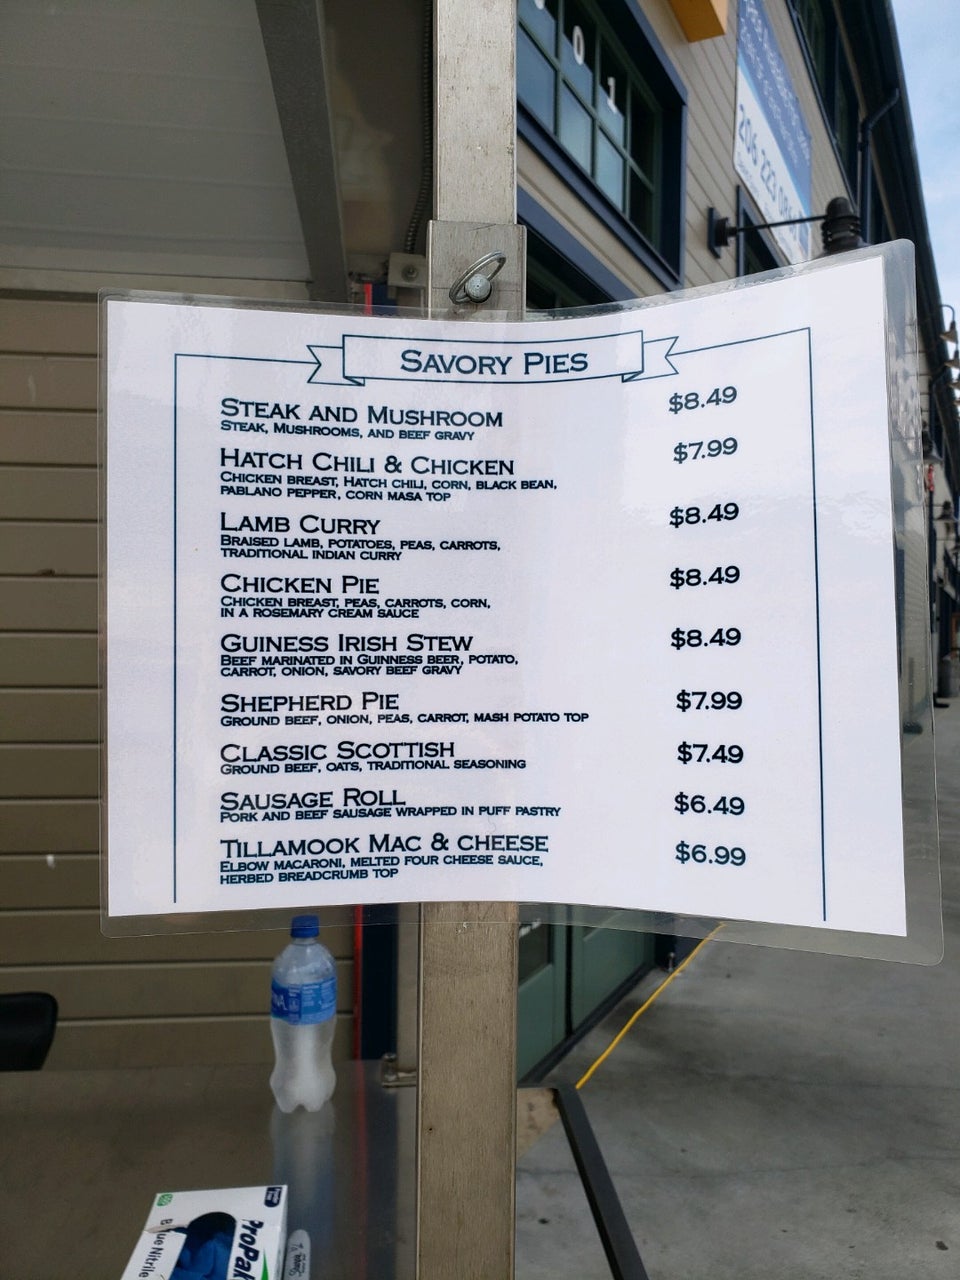 0
1
206 223 0
SAVORY PIES
STEAK AND MUSHROOM $8.49
STEAK, MUSHROOMS, AND BEEF GRAVY
HATCH CHILI & CHICKEN $7.99
CHICKEN BREAST, HATCH CHILI, CORN, BLACK BEAN,
PABLANO PEPPER, CORN MASA TOP
LAMB CURRY $8.49
BRAISED LAMB, POTATOES, PEAS, CARROTS,
TRADITIONAL INDIAN CURRY
CHICKEN PIE $8.49
CHICKEN BREAST, PEAS, CARROTS, CORN,
IN A ROSEMARY CREAM SAUCE
GUINESS IRISH STEW $8.49
BEEF MARINATED IN GUINNESS BEER, POTATO,
CARROT, ONION, SAVORY BEEF GRAVY
SHEPHERD PIE $7.99
GROUND BEEF, ONION, PEAS, CARROT, MASH POTATO TOP
CLASSIC SCOTTISH $7.49
GROUND BEEF, OATS, TRADITIONAL SEASONING
SAUSAGE ROLL $6.49
PORK AND BEEF SAUSAGE WRAPPED IN PUFF PASTRY
TILLAMOOK MAC & CHEESE $6.99
ELBOW MACARONI, MELTED FOUR CHEESE SAUCE,
HERBED BREADCRUMB TOP
ProPak
Nitrile